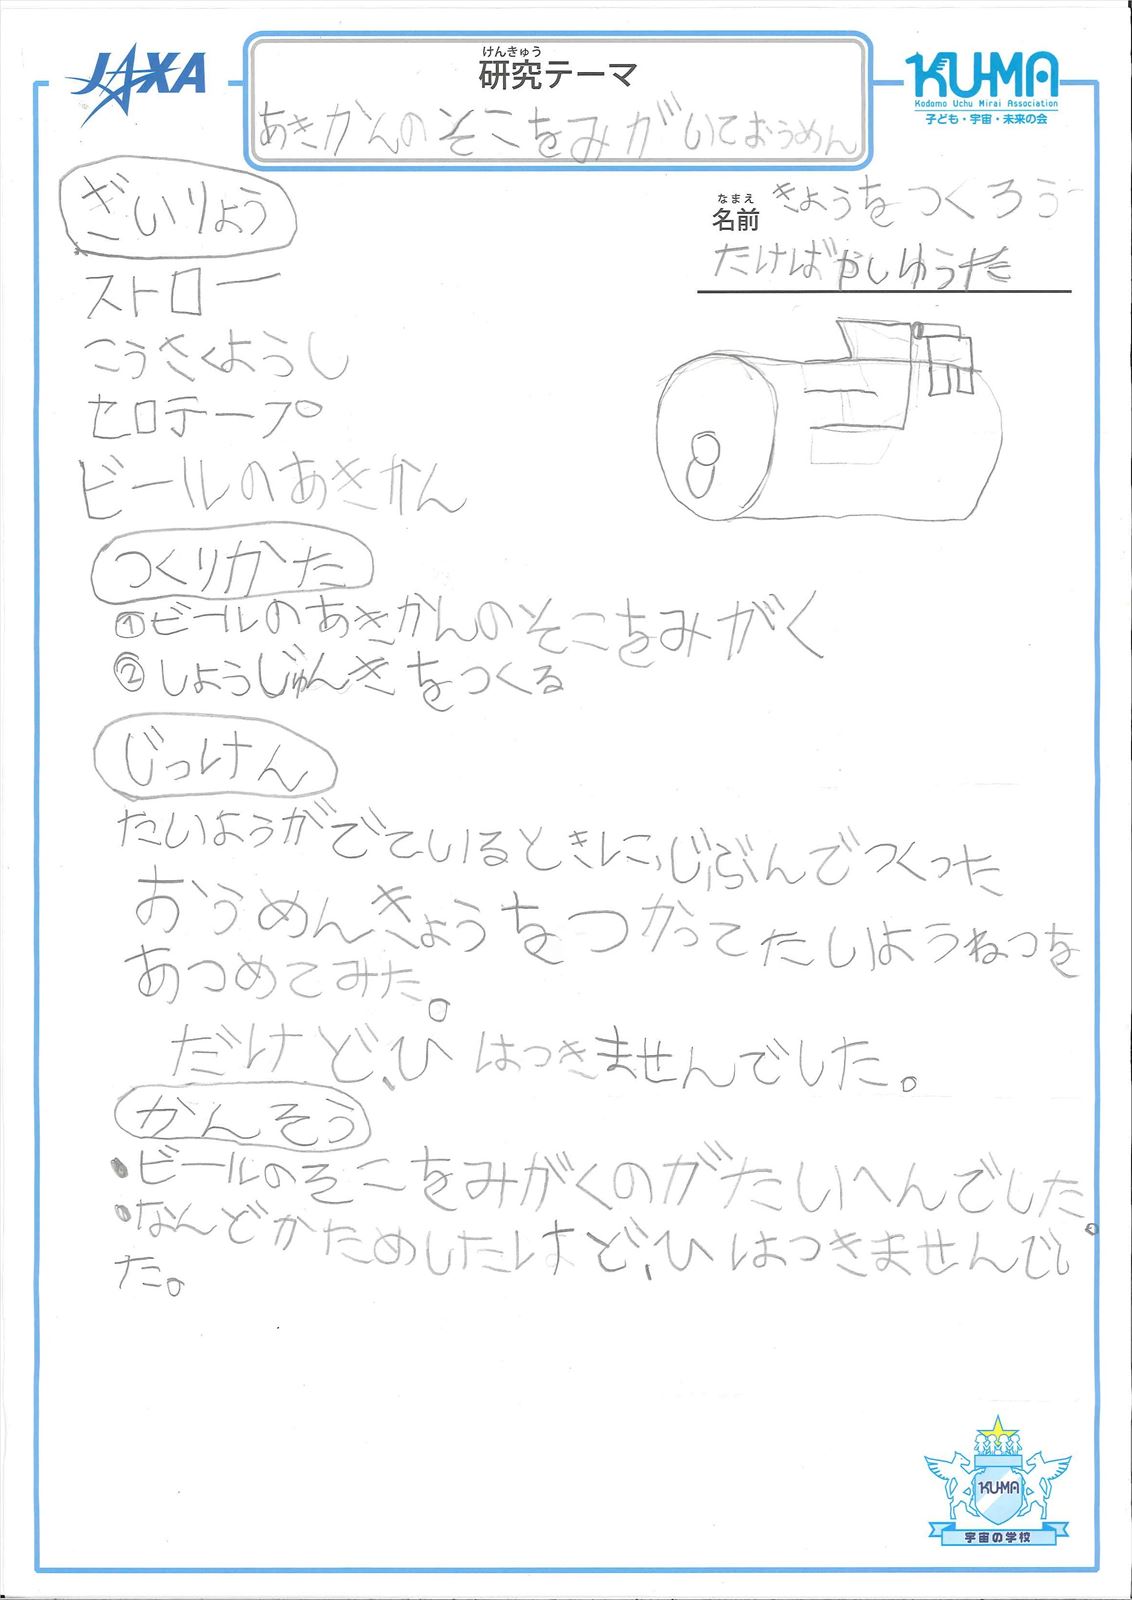 JAXA
けんきゅう
研究テーマ
KU-MA
Kodomo Uchu Mirai Association
子ども・宇宙・未来の会
あきかんのそこをみがいておうめん
きょうをつくろう
なまえ
名前
たけばやしゆうた
ざいりょう
ストロー
こうさくようし
セロテープ
ビールのあきかん
つくりかた
①ビールのあきかんのそこをみがく
②しょうじゅんきをつくる
じっけん
たいようがでているときに、じぶんでつくった
おうめんきょうをつかってたいようねつを
あつめてみた。
だけど、ひはつきませんでした。
かんそう
・ビールのそこをみがくのがたいへんでした。
・なんどかためしたけど、ひはつきませんでし
た。
KU-MA
宇宙の学校